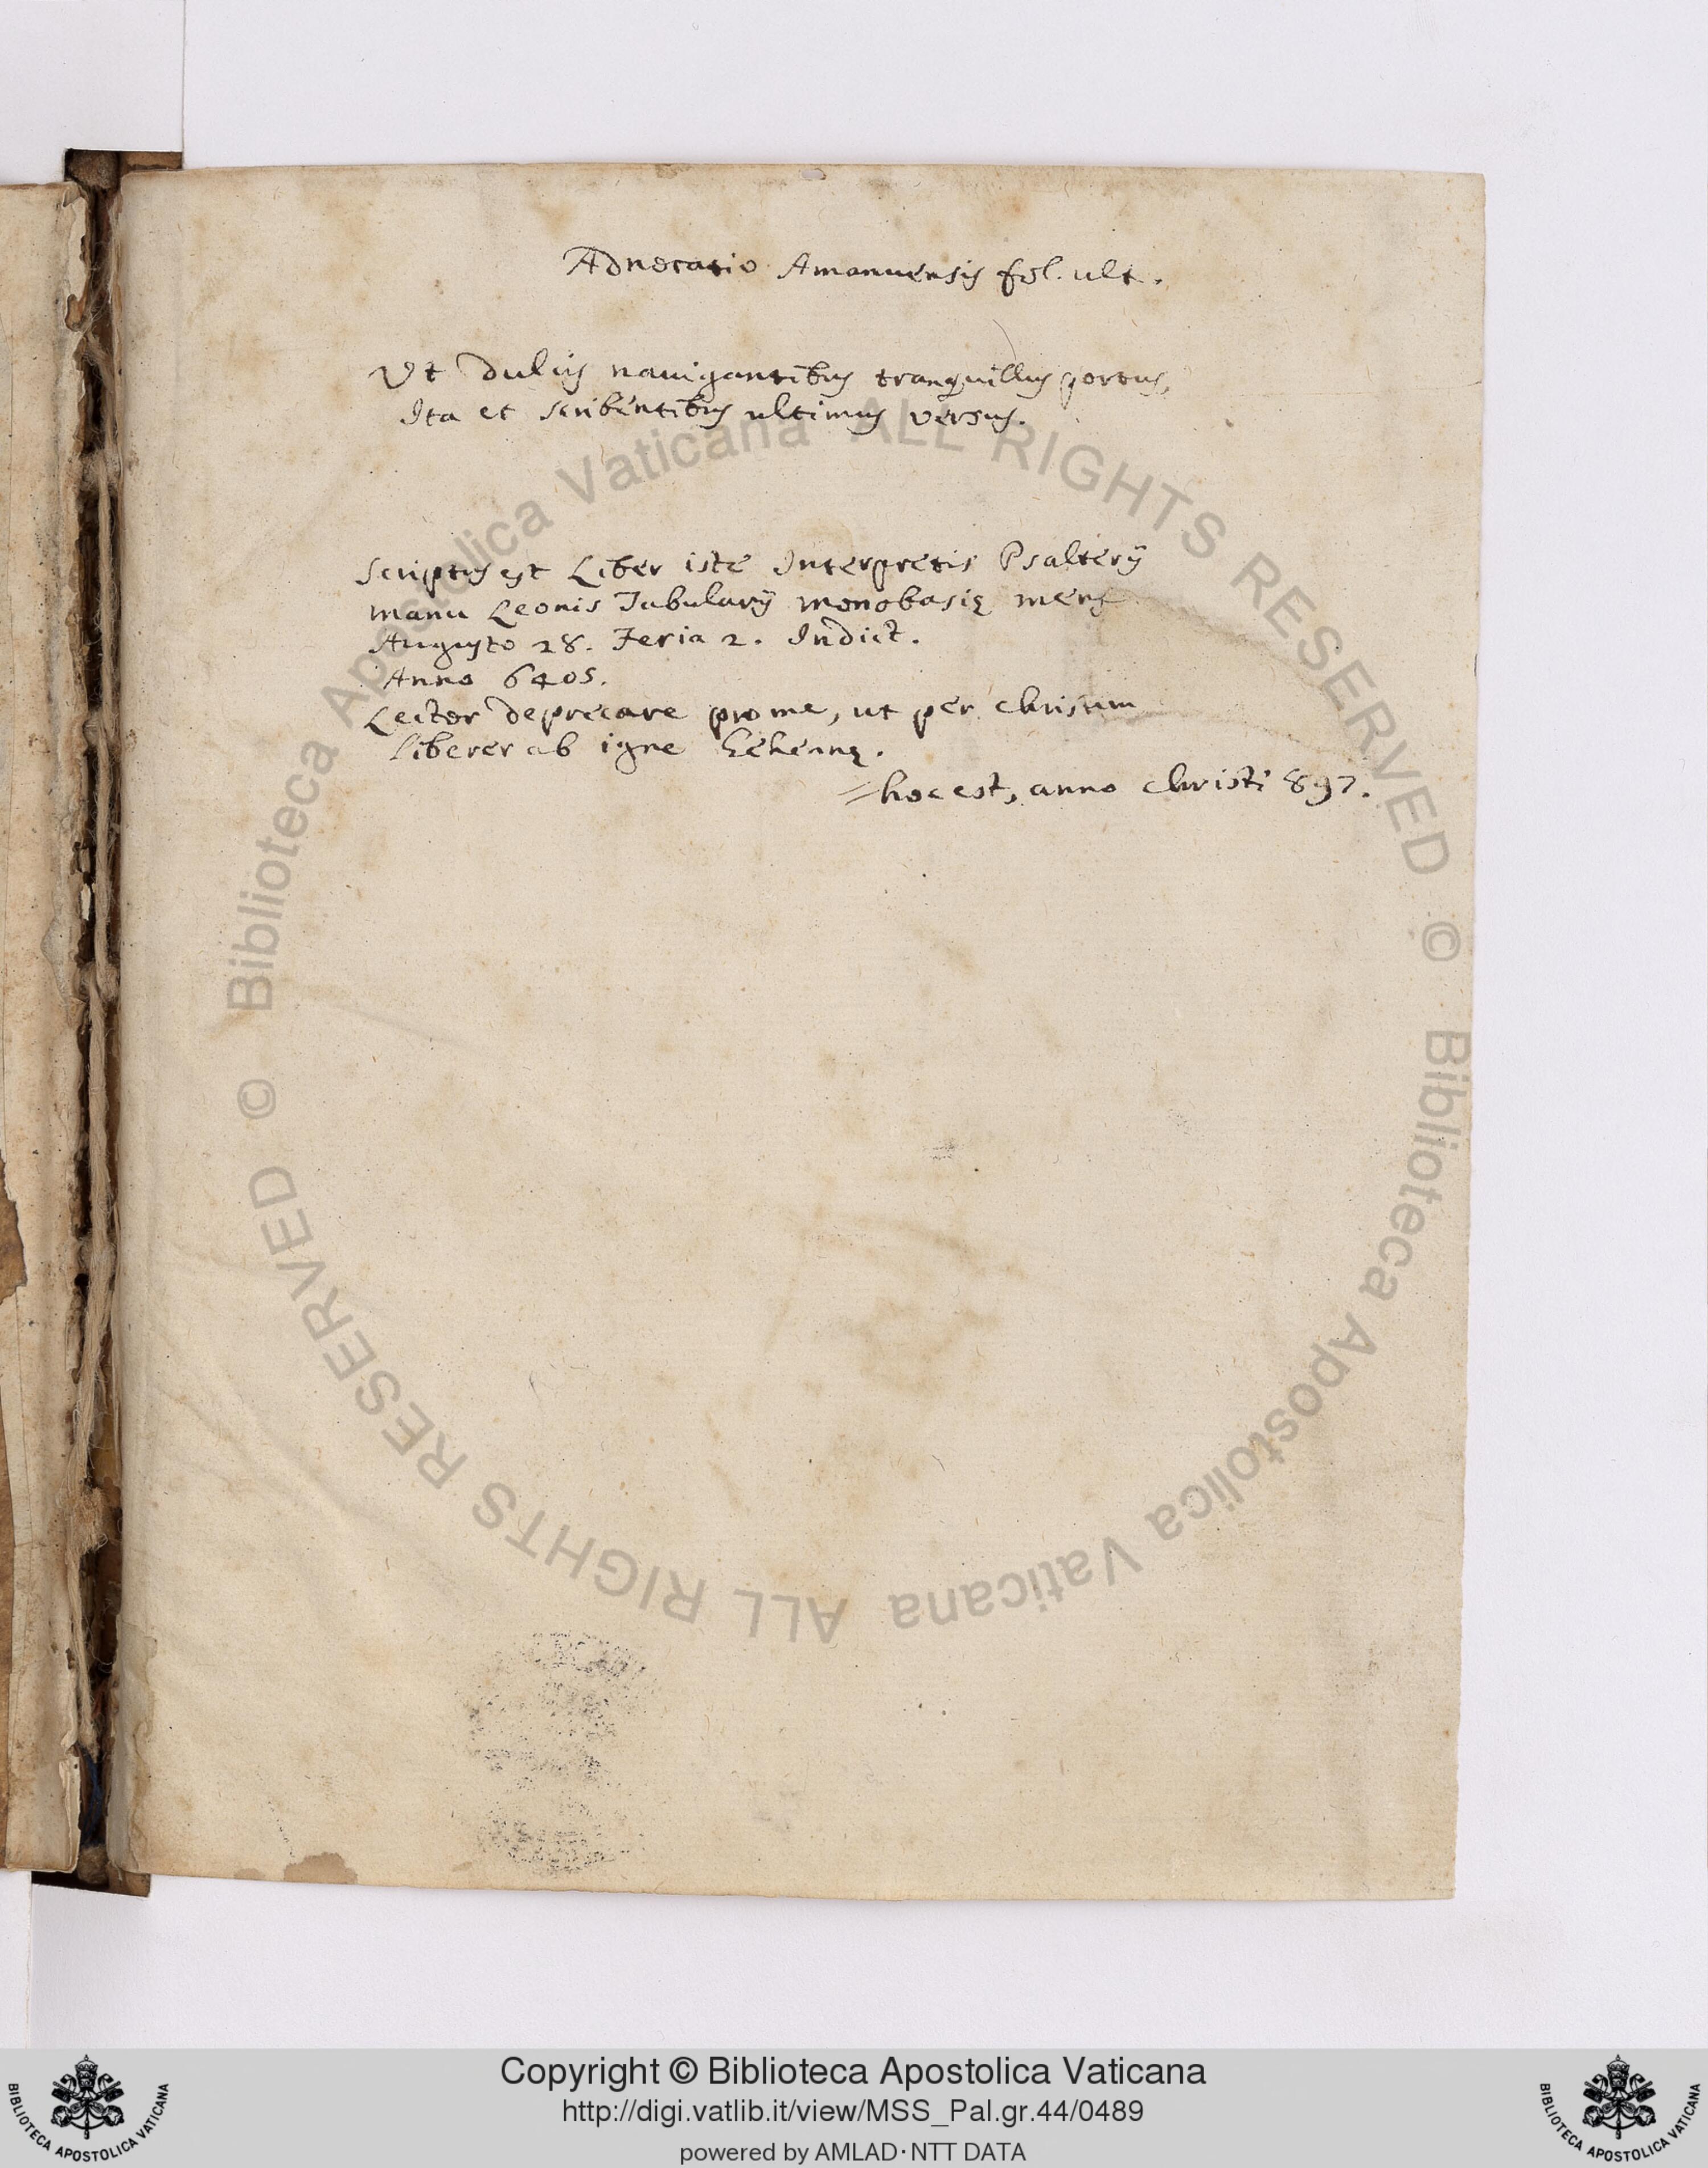 Adnotatio Amanuensis fol. ult.
Vt dulcis nauigantibus tranquillus portus,
Ita et scribentibus ultimus versus.
Scriptus est Liber iste Interpretis Psalterij
manu Leonis Tabularij monobasię mens
Augusto 28. Feria 2. Indict.
Anno 6405.
Lector deprecare pro me, ut per christum
liberer ab igne Gehennę.
hoc est, anno christi 897.
© Biblioteca Apostolica Vaticana ALL RIGHTS RESERVED
© Biblioteca Apostolica Vaticana ALL RIGHTS RESERVED
Copyright © Biblioteca Apostolica Vaticana
http://digi.vatlib.it/view/MSS_Pal.gr.44/0489
powered by AMLAD·NTT DATA
BIBLIOTECA APOSTOLICA VATICANA
BIBLIOTECA APOSTOLICA VATICANA